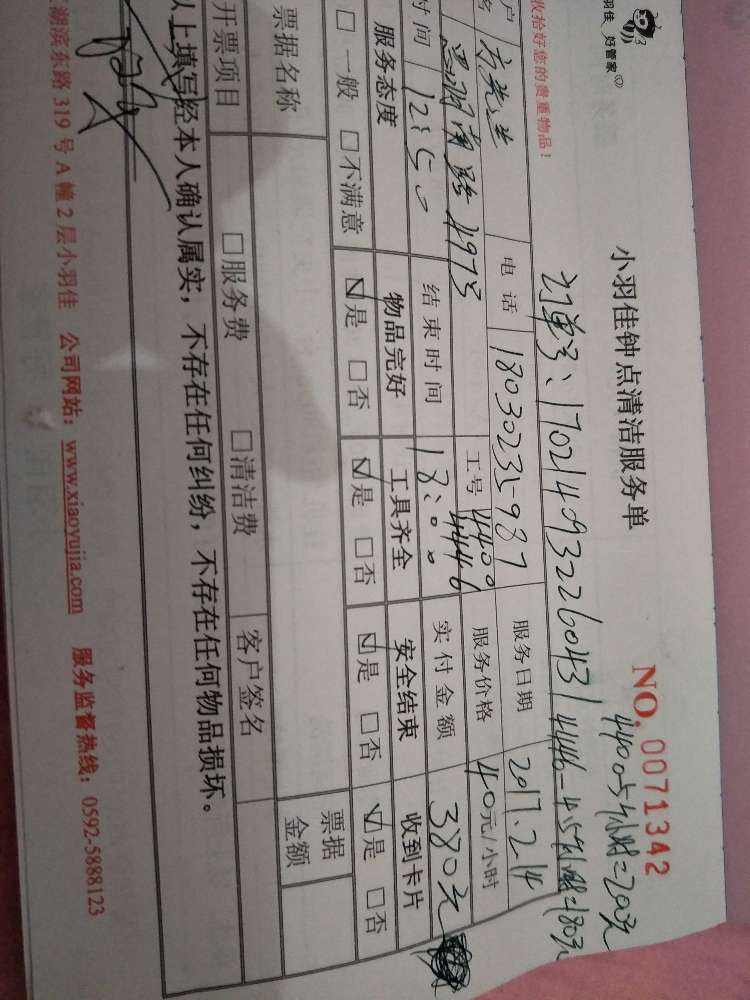 羽佳 好管家
收拾好您的贵重物品！
小羽佳钟点清洁服务单
NO. 0071342
4400 5小时=200元
订单号：1702140932260431
4446-4.5小时=180元
户 方先生 电话 18030235987 服务日期 2017.2.14
湖南路 497号 工号 4400 4446 服务价格 40元/小时
时间 12:50 结束时间 18:00 实付金额 380元
服务态度 物品完好 工具齐全 安全结束 收到卡片
□ 一般 □ 不满意 ☑是 □否 ☑是 □否 ☑是 □否 ☑是 □否
票据名称 票据金额
开票项目 □服务费 □清洁费 客户签名
以上填写经本人确认属实，不存在任何纠纷，不存在任何物品损坏。
湖滨东路 319 号 A 幢 2 层小羽佳 公司网站：www.xiaoyujia.com 服务监督热线：0592-5888123